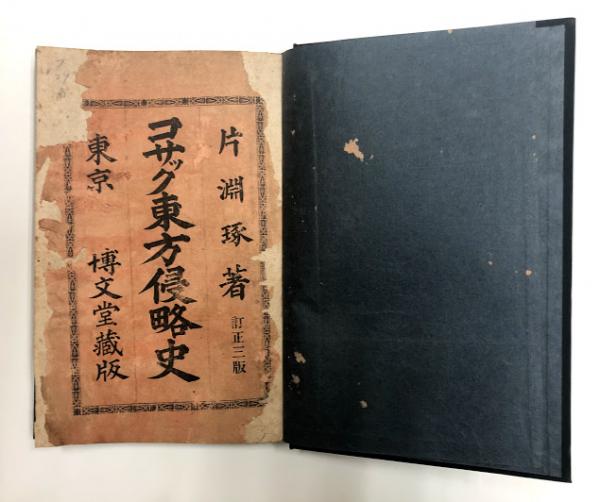 片淵琢著 訂正三版
コサック東方侵略史
東京 博文堂藏版